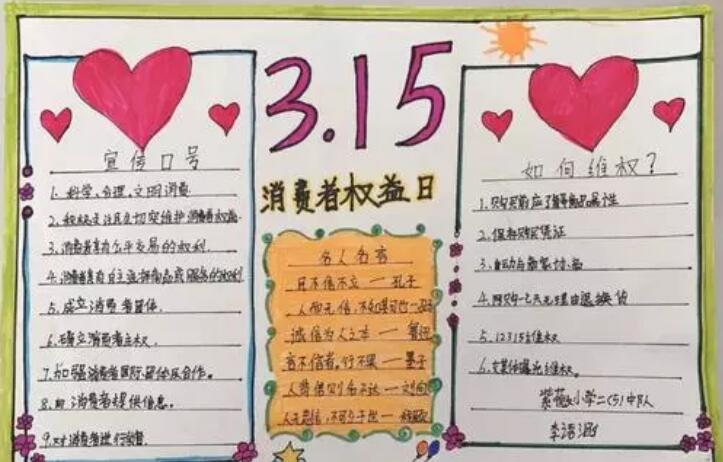 3.15
消费者权益日
宣传口号
1. 科学、合理、文明消费
2. 积极关注民生切实维护消费者权益.
3. 消费者享有公平交易的权利.
4. 消费者享有自主选择商品或服务的权利
5. 成立消费者团体.
6. 确立消费者主权.
7. 加强消费者国际团体及合作。
8. 向消费者提供信息。
9. 对消费者进行
名人名言
民不信不立 — 孔子
人而无信,不知其可也 — 孔子
诚信为人之本 — 鲁迅
言不信者,行不果 — 墨子
人背信则名不达 — 刘向
人无忠信,不可立于世 —
如何维权?
1. 购买前应了解商品属性
2. 保存购买凭证
3. 主动与商家讨论
4. 网购七天无理由退换货
5. 12315维权
6. 交媒体曝光维权.
小学二(5)中队
李